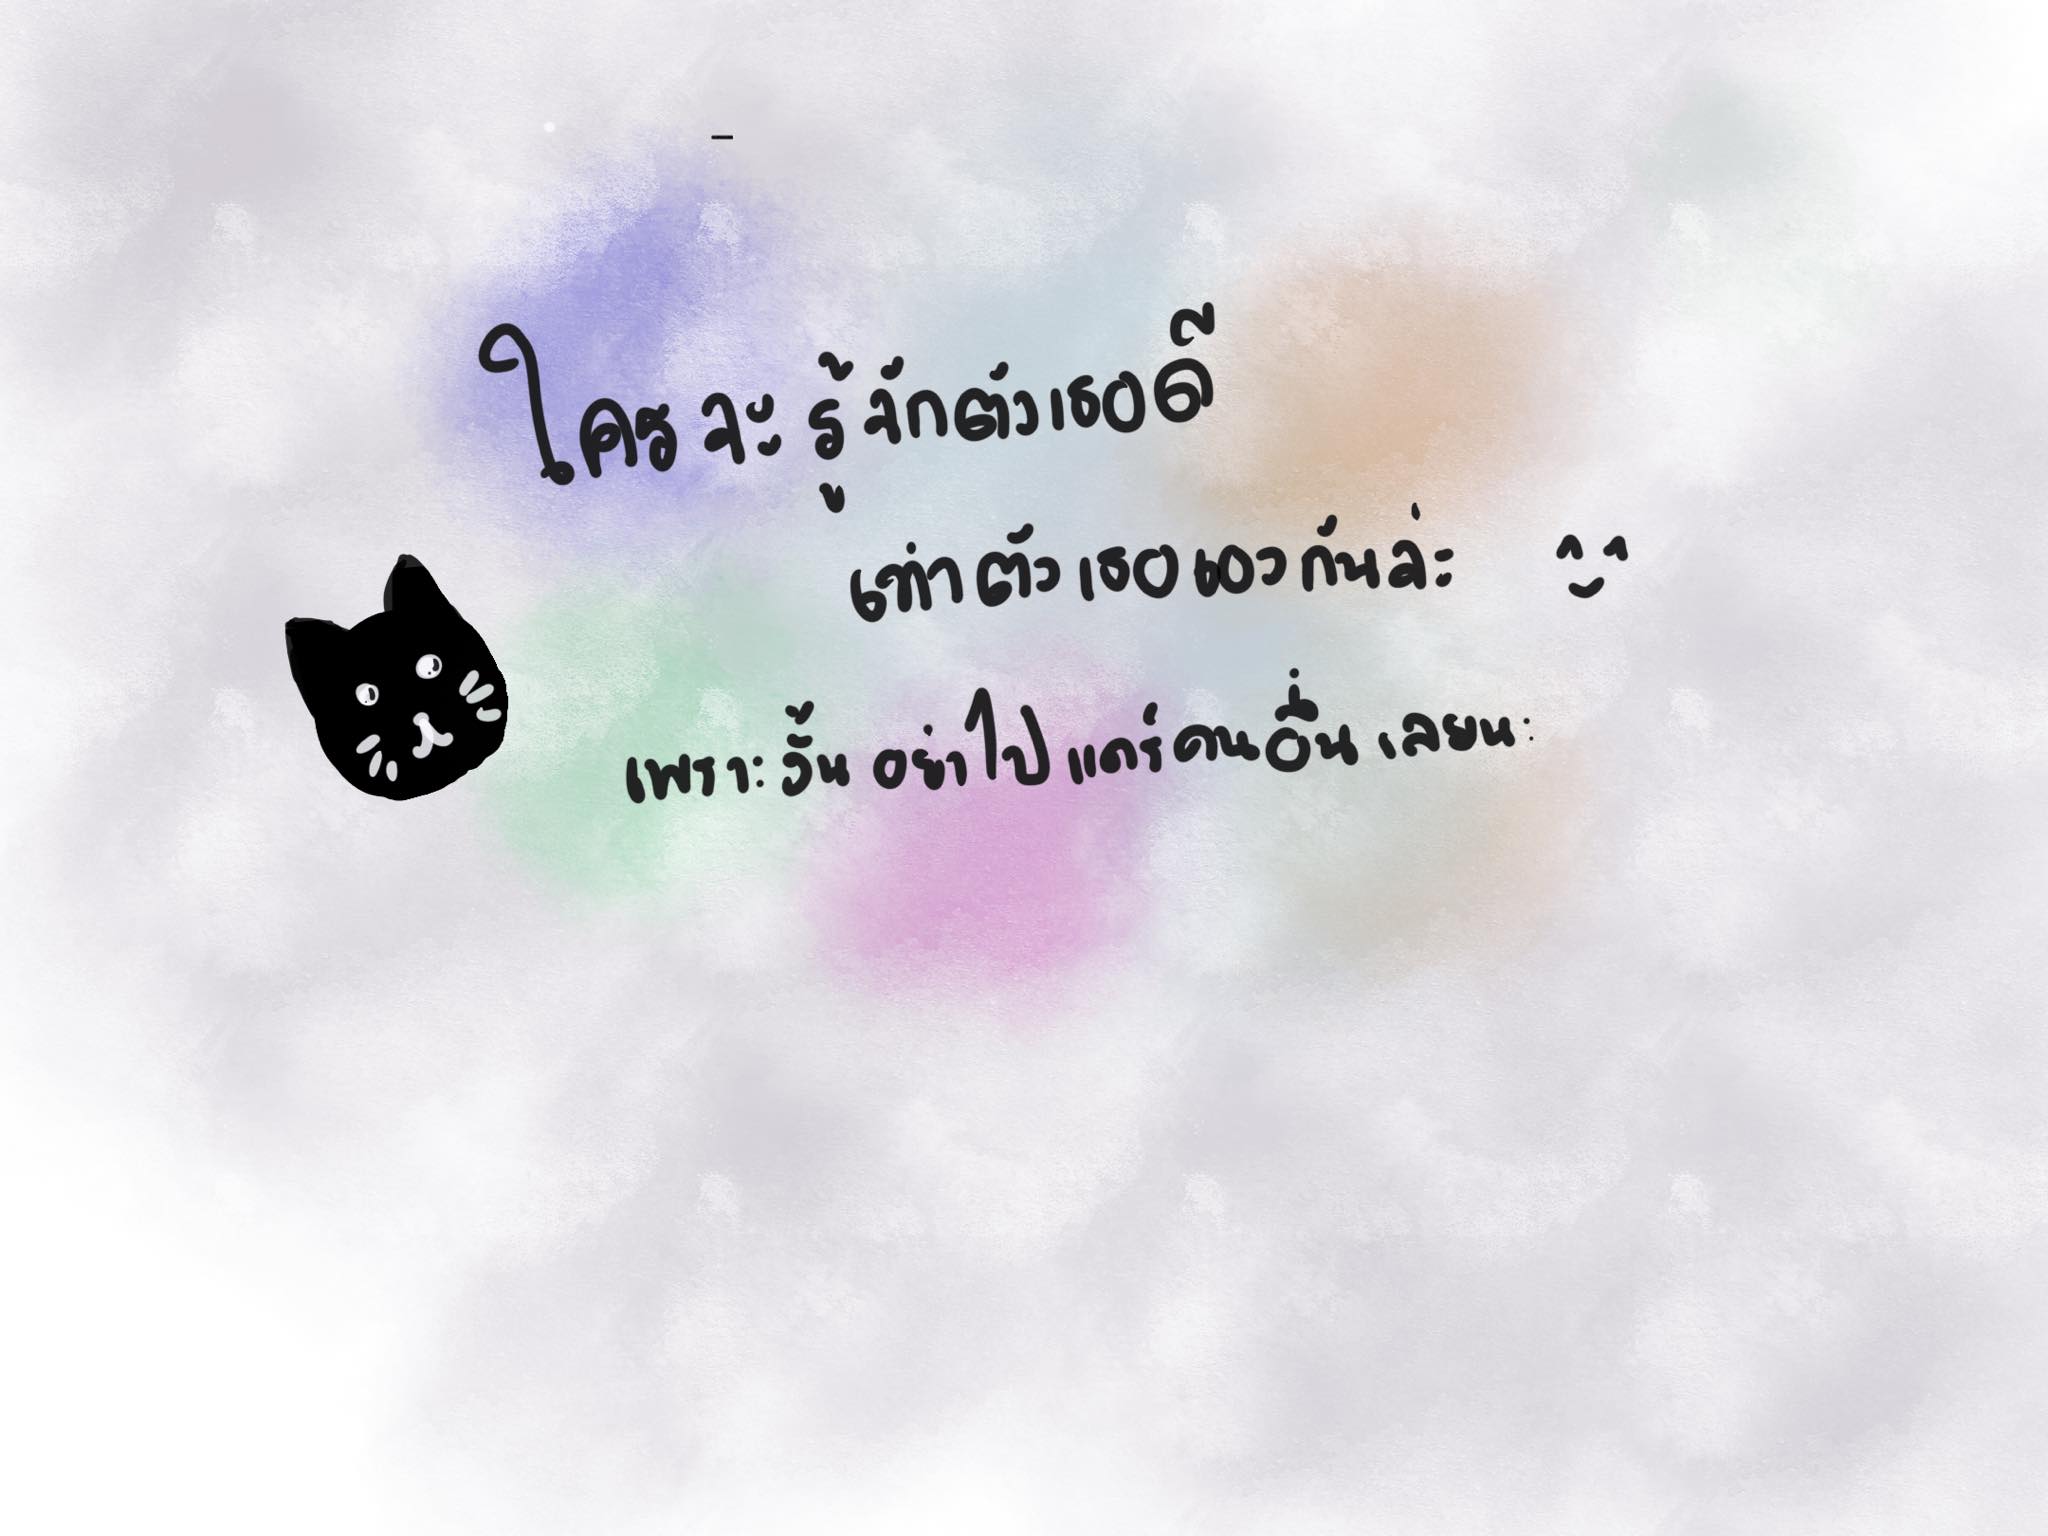 ใครจะรู้จักตัวเธอดี
เท่าตัวเธอเองกันล่ะ ^ ^
เพราะงั้นอย่าไปแคร์คนอื่นเลยนะ